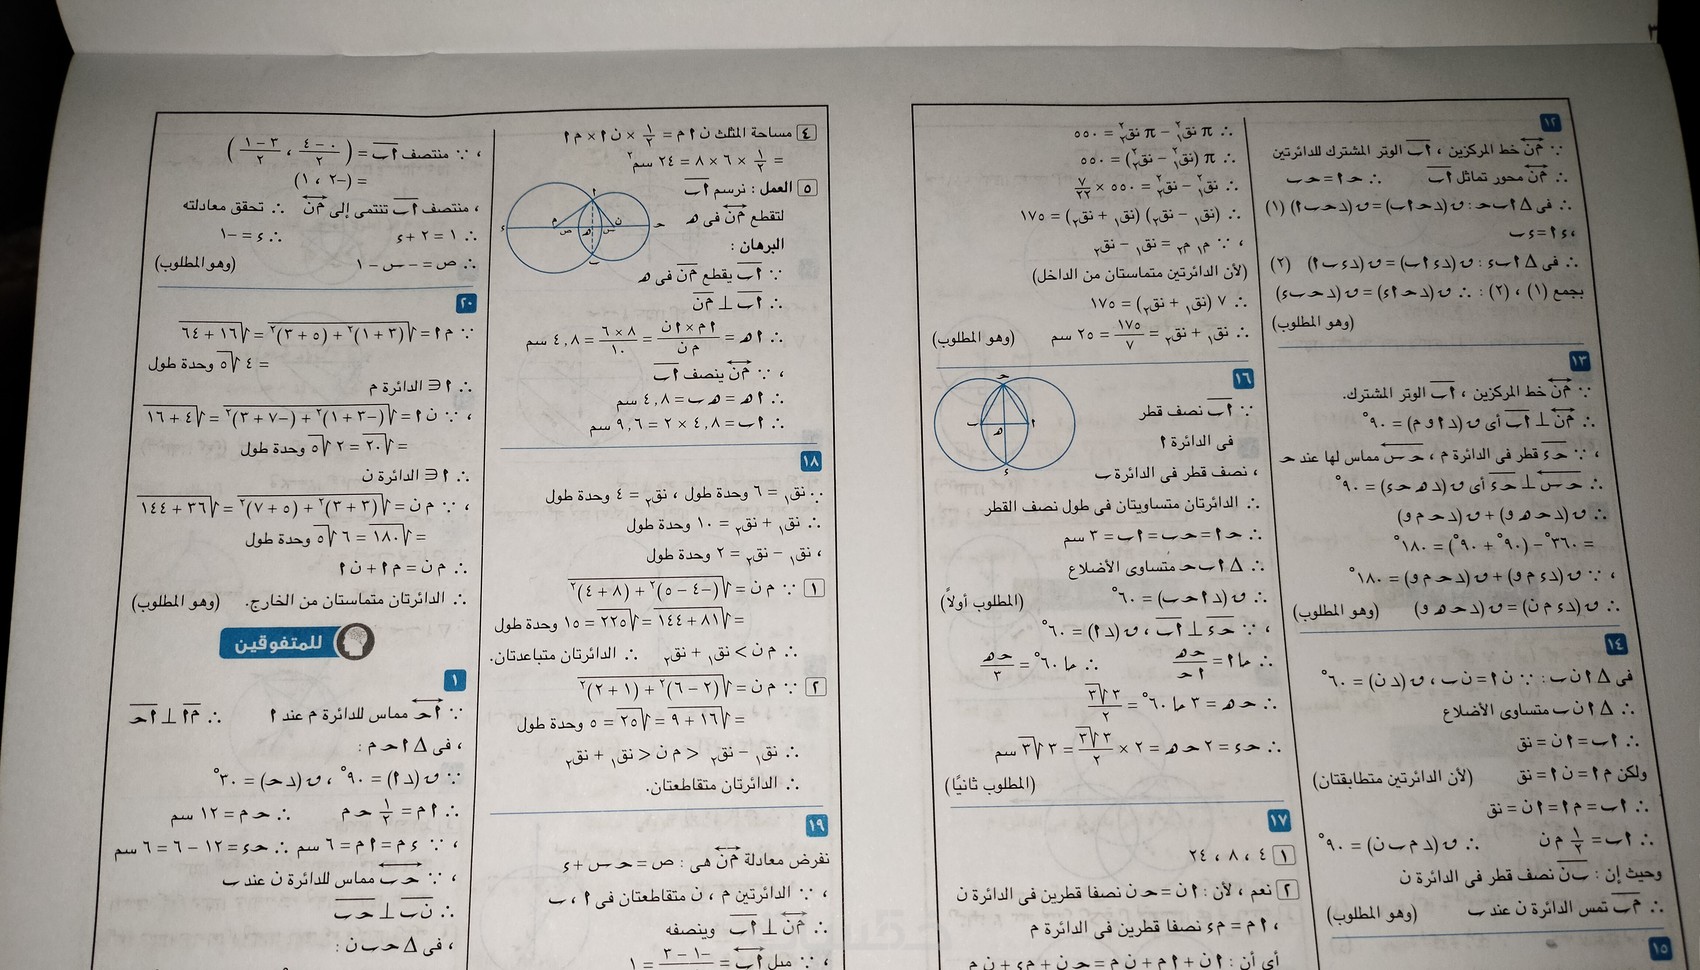 ١٢
∵ م ن خط المركزين ، ا ب الوتر المشترك للدائرتين
∴ م ن محور تماثل ا ب ∴ حـ ا = حـ ب
∴ فى Δ ا ب حـ : ق (∠ حـ ا ب) = ق (∠ حـ ب ا) (١)
، ء ا = ء ب
∴ فى Δ ا ب ء : ق (∠ ء ا ب) = ق (∠ ء ب ا) (٢)
بجمع (١) ، (٢) : ∴ ق (∠ حـ ا ء) = ق (∠ حـ ب ء)
(وهو المطلوب)
١٣
∵ م ن خط المركزين ، ا ب الوتر المشترك.
∴ م ن ⊥ ا ب أى ق (∠ ا و م) = ٩٠°
، ∵ حـ ء قطر فى الدائرة م ، حـ س مماس لها عند حـ
∴ حـ س ⊥ حـ ء أى ق (∠ هـ حـ ء) = ٩٠°
∴ ق (∠ حـ هـ و) + ق (∠ حـ م و)
= ٣٦٠° − (٩٠° + ٩٠°) = ١٨٠°
، ∵ ق (∠ ء م و) + ق (∠ حـ م و) = ١٨٠°
∴ ق (∠ ء م ن) = ق (∠ حـ هـ و) (وهو المطلوب)
١٤
فى Δ ا ن ب : ∵ ن ا = ن ب ، ق (∠ ن) = ٦٠°
∴ Δ ا ن ب متساوى الأضلاع
∴ ا ب = ا ن = نق
ولكن م ا = ن ا = نق (لأن الدائرتين متطابقتان)
∴ ا ب = م ا = ا ن = نق
∴ ا ب = ١/٢ م ن ∴ ق (∠ م ب ن) = ٩٠°
وحيث إن : ب ن نصف قطر فى الدائرة ن
∴ م ب تمس الدائرة ن عند ب (وهو المطلوب)
١٥
∴ π نق₁² − π نق₂² = ٥٥٠
∴ π (نق₁² − نق₂²) = ٥٥٠
∴ نق₁² − نق₂² = ٥٥٠ × ٧/٢٢
∴ (نق₁ − نق₂) (نق₁ + نق₂) = ١٧٥
، ∵ م₁ م₂ = نق₁ − نق₂
(لأن الدائرتين متماستان من الداخل)
∴ ٧ (نق₁ + نق₂) = ١٧٥
∴ نق₁ + نق₂ = ١٧٥/٧ = ٢٥ سم (وهو المطلوب)
١٦
∵ ا ب نصف قطر
فى الدائرة ا
، نصف قطر فى الدائرة ب
∴ الدائرتان متساويتان فى طول نصف القطر
∴ حـ ا = حـ ب = ا ب = ٣ سم
∴ Δ ا ب حـ متساوى الأضلاع
∴ ق (∠ ا حـ ب) = ٦٠° (المطلوب أولاً)
، ∵ حـ ء ⊥ ا ب ، ق (∠ ا) = ٦٠°
∴ حا ا = حـ هـ/ا حـ ∴ حا ٦٠° = حـ هـ/٣
∴ حـ هـ = ٣ حا ٦٠° = ٣√٣/٢
∴ حـ ء = ٢ حـ هـ = ٢ × ٣√٣/٢ = ٣√٣ سم
(المطلوب ثانيًا)
١٧
١ ٤ ، ٨ ، ٢٤
٢ نعم ، لأن : ا ن = حـ ن نصفا قطرين فى الدائرة ن
، ا م = م ء نصفا قطرين فى الدائرة م
أى أن : ا ن + ا م + ن م = حـ ن + م ء + ن م
٤ مساحة المثلث ن ا م = ١/٢ × ن ا × م ا
= ١/٢ × ٦ × ٨ = ٢٤ سم²
٥ العمل : نرسم ا ب
لتقطع م ن فى هـ
البرهان :
∵ ا ب يقطع م ن فى هـ
∴ ا ب ⊥ م ن
∴ ا هـ = ا م × ا ن/م ن = ٨ × ٦/١٠ = ٤,٨ سم
، ∵ م ن ينصف ا ب
∴ ا هـ = هـ ب = ٤,٨ سم
∴ ا ب = ٤,٨ × ٢ = ٩,٦ سم
١٨
∵ نق₁ = ٦ وحدة طول ، نق₂ = ٤ وحدة طول
∴ نق₁ + نق₂ = ١٠ وحدة طول
، نق₁ − نق₂ = ٢ وحدة طول
١ ∵ م ن = √((−٤ − ٥)² + (٨ + ٤)²)
= √(٨١ + ١٤٤) = √٢٢٥ = ١٥ وحدة طول
∴ م ن > نق₁ + نق₂ ∴ الدائرتان متباعدتان.
٢ ∵ م ن = √((٢ − ٦)² + (١ + ٢)²)
= √(١٦ + ٩) = √٢٥ = ٥ وحدة طول
∴ نق₁ − نق₂ < م ن < نق₁ + نق₂
∴ الدائرتان متقاطعتان.
١٩
نفرض معادلة م ن هى : ص = حـ س + ء
، ∵ الدائرتين م ، ن متقاطعتان فى ا ، ب
∴ م ن ⊥ ا ب وينصفه
، ∵ ميل ا ب = −١ − ٣ = ١
، ∵ منتصف ا ب = (٠ − ٤/٢ ، ٣ − ١/٢)
= (−٢ ، ١)
، منتصف ا ب تنتمى إلى م ن ∴ تحقق معادلته
∴ ١ = ٢ + ء ∴ ء = −١
∴ ص = − س − ١ (وهو المطلوب)
٢٠
∵ م ا = √((٣ + ١)² + (٥ + ٣)²) = √(١٦ + ٦٤)
= ٤√٥ وحدة طول
∴ ا ∈ الدائرة م
، ∵ ن ا = √((−٣ + ١)² + (−٧ + ٣)²) = √(٤ + ١٦)
= √٢٠ = ٢√٥ وحدة طول
∴ ا ∈ الدائرة ن
، ∵ م ن = √((٣ + ٣)² + (٥ + ٧)²) = √(٣٦ + ١٤٤)
= √١٨٠ = ٦√٥ وحدة طول
∴ م ن = م ا + ن ا
∴ الدائرتان متماستان من الخارج. (وهو المطلوب)
للمتفوقين
١
∵ ا حـ مماس للدائرة م عند ا ∴ م ا ⊥ ا حـ
، فى Δ ا حـ م :
∵ ق (∠ ا) = ٩٠° ، ق (∠ حـ) = ٣٠°
∴ ا م = ١/٢ حـ م ∴ حـ م = ١٢ سم
، ∵ ء م = ا م = ٦ سم ∴ حـ ء = ١٢ − ٦ = ٦ سم
، ∵ حـ ب مماس للدائرة ن عند ب
∴ ن ب ⊥ حـ ب
، فى Δ حـ ب ن :